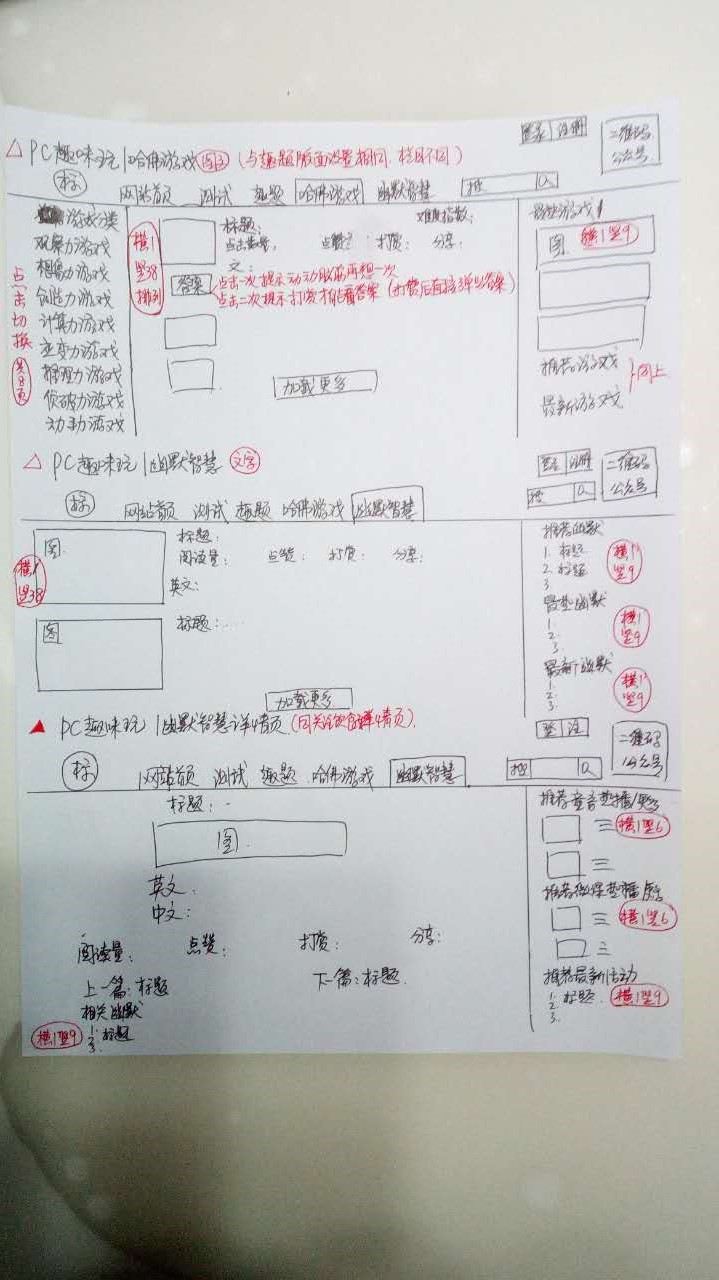 登录 注册
二维码
公众号
△ PC趣味玩 | 哈佛游戏 (与趣题版面设置相同,栏目不同)
标
网站首页 测试 趣题 哈佛游戏 幽默智慧
搜 Q
游戏分类
观察力游戏
想象力游戏
创造力游戏
计算力游戏
应变力游戏
推理力游戏
侦破力游戏
动手力游戏
点击切换
共8页
横1
竖38
排列
标题: 难度指数:
点赞: 打赏: 分享:
文:
答案
点击一次提示动动脑筋再想一次
点击二次提示打赏才能看答案(打赏后直接弹出答案)
加载更多
最热游戏
图 横1竖9
推荐游戏
最新游戏
同上
△ PC趣味玩 | 幽默智慧 文字
登录 注册
二维码
公众号
搜 Q
标
网站首页 测试 趣题 哈佛游戏 幽默智慧
横1
竖38
图
标题:
阅读量: 点赞: 打赏: 分享:
英文:
图
标题:...
加载更多
推荐幽默
1. 标题
2. 标题
3.
横1
竖9
最热幽默
1.
2.
3.
横1
竖9
最新幽默
1.
2.
3.
横1
竖9
▲ PC趣味玩 | 幽默智慧详情页
登 注
二维码
公众号
标
网站首页 测试 趣题 哈佛游戏 幽默智慧
搜 Q
标题:
图
英文:
中文:
阅读量: 点赞: 打赏: 分享:
上一篇:标题 下一篇:标题
相关幽默
1. 标题
2.
3.
横1竖9
横1竖6
横1竖6
推荐最新活动
1. 标题
2.
3.
横1竖9